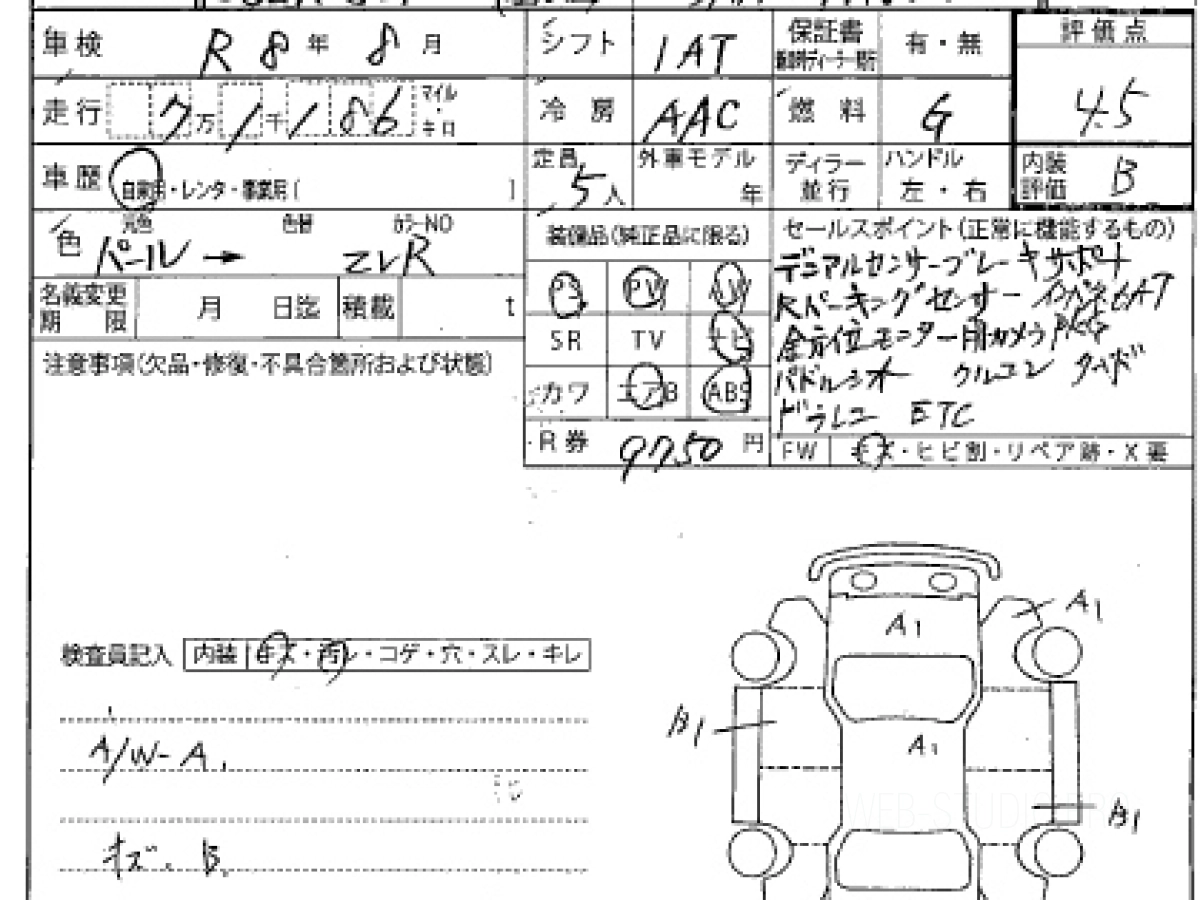 車検 R 8 年 8 月 シフト IAT 保証書 新車時ディーラー発行 有・無 評価点
走行 7 万 1 千 1 8 6 マイル・キロ 冷房 AAC 燃料 G 4.5
車歴 自家用・レンタ・事業用 [ ] 定員 5 人 外車モデル 年 ディラー並行 ハンドル 左・右 内装評価 B
色 元色 色替 カラーNO
パール →
装備品(純正品に限る) セールスポイント(正常に機能するもの)
デュアルセンサーブレーキサポート
PS PW AW
Rパーキングセンサー インパネ6AT
名義変更期限 月 日迄 積載 t
SR TV ナビ
全方位モニター用カメラ PKG
注意事項(欠品・修復・不具合箇所および状態)
カワ エアB ABS
パドルシフト クルコン ターボ
ドラレコ ETC
R券 9750 円 FW キズ・ヒビ割・リペア跡・X要
検査員記入 内装 キズ・汚レ・コゲ・穴・スレ・キレ
A1
A1
B1
A1
A/W-A.
B1
キズ. B.
WEB-STUDIO